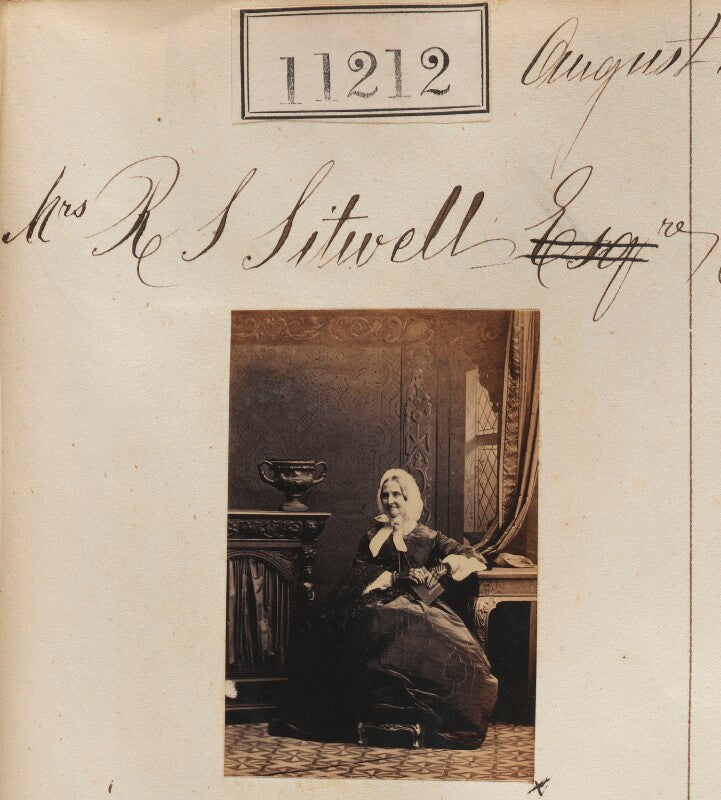 11212
August
Mrs R S Sitwell Esqre